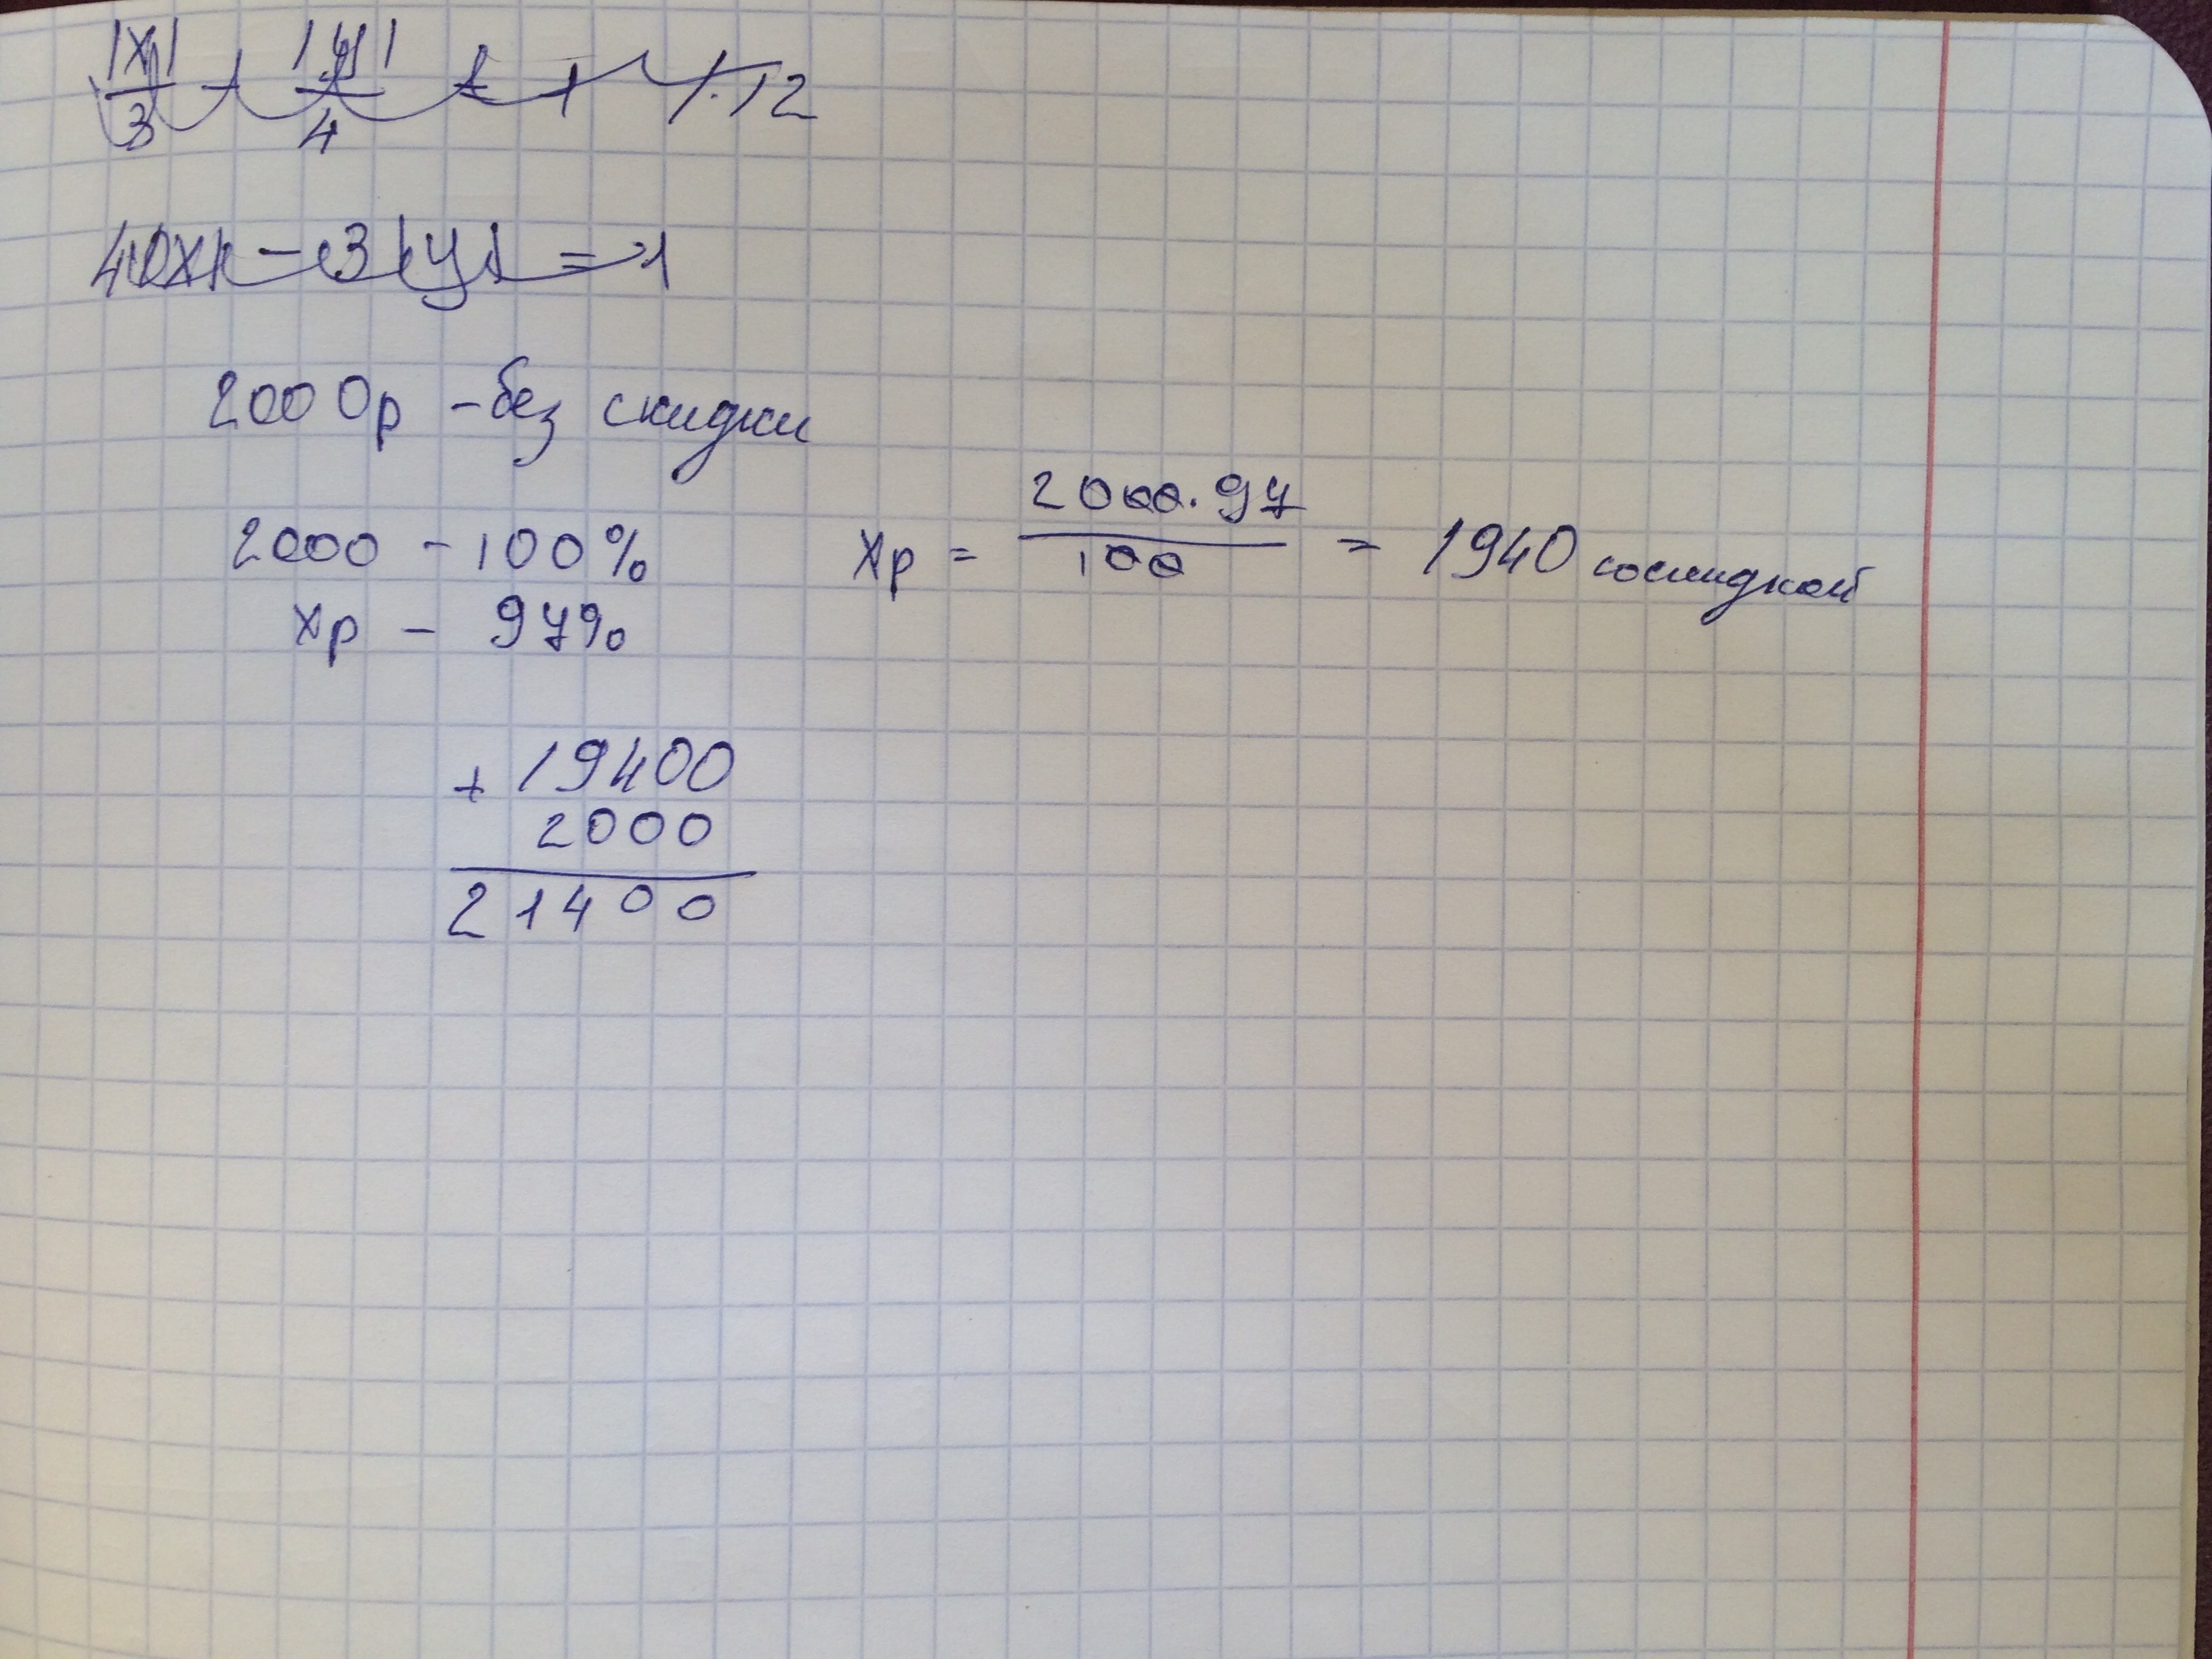 |x|/3 - |y|/4 = 1 /·12
4|x| - 3|y| = 1
2000р - без скидки
2000 - 100% xр = 2000·97/100 = 1940 со скидкой
xр - 97%
+ 19400
2000
21400